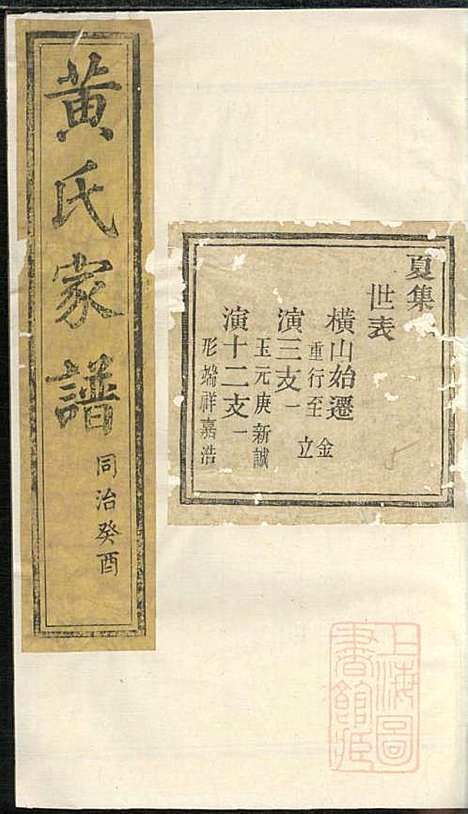 夏集
世表
橫山始遷
重行至 金
演三支一 立
玉元庚新誠
演十二支一
形端祥嘉浩
黃氏家譜
同治癸酉
上海圖
書館藏